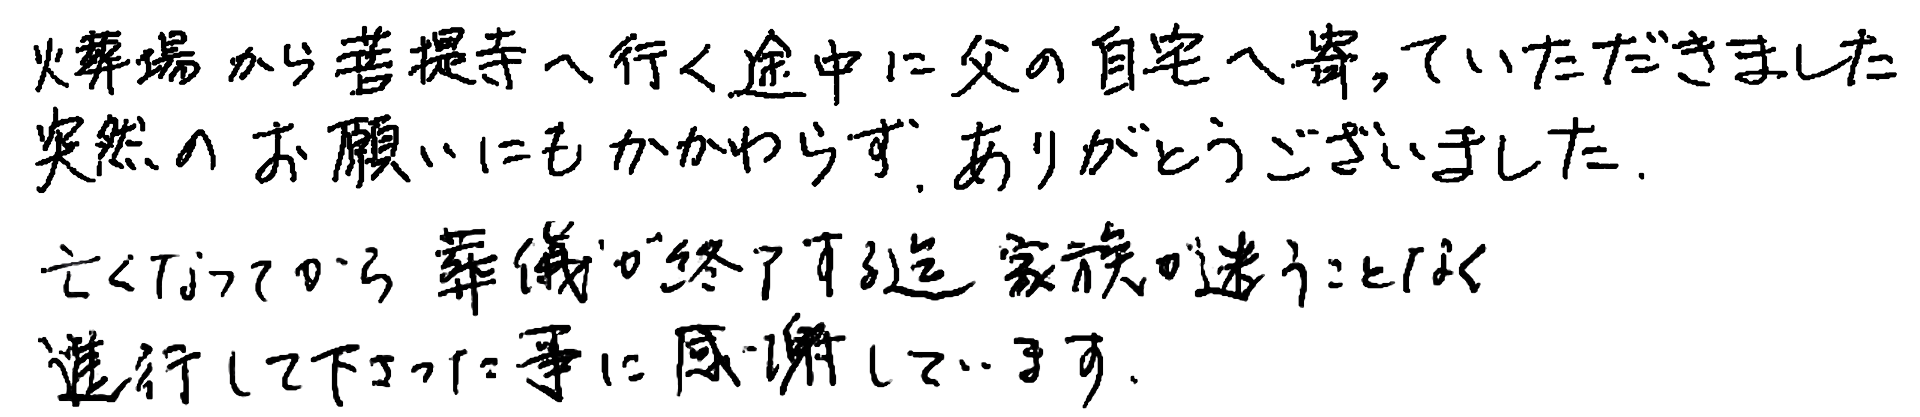 火葬場から菩提寺へ行く途中に父の自宅へ寄っていただきました
突然のお願いにもかかわらず、ありがとうございました.
亡くなってから葬儀が終了する迄家族が迷うことなく
進行して下さった事に感謝しています.